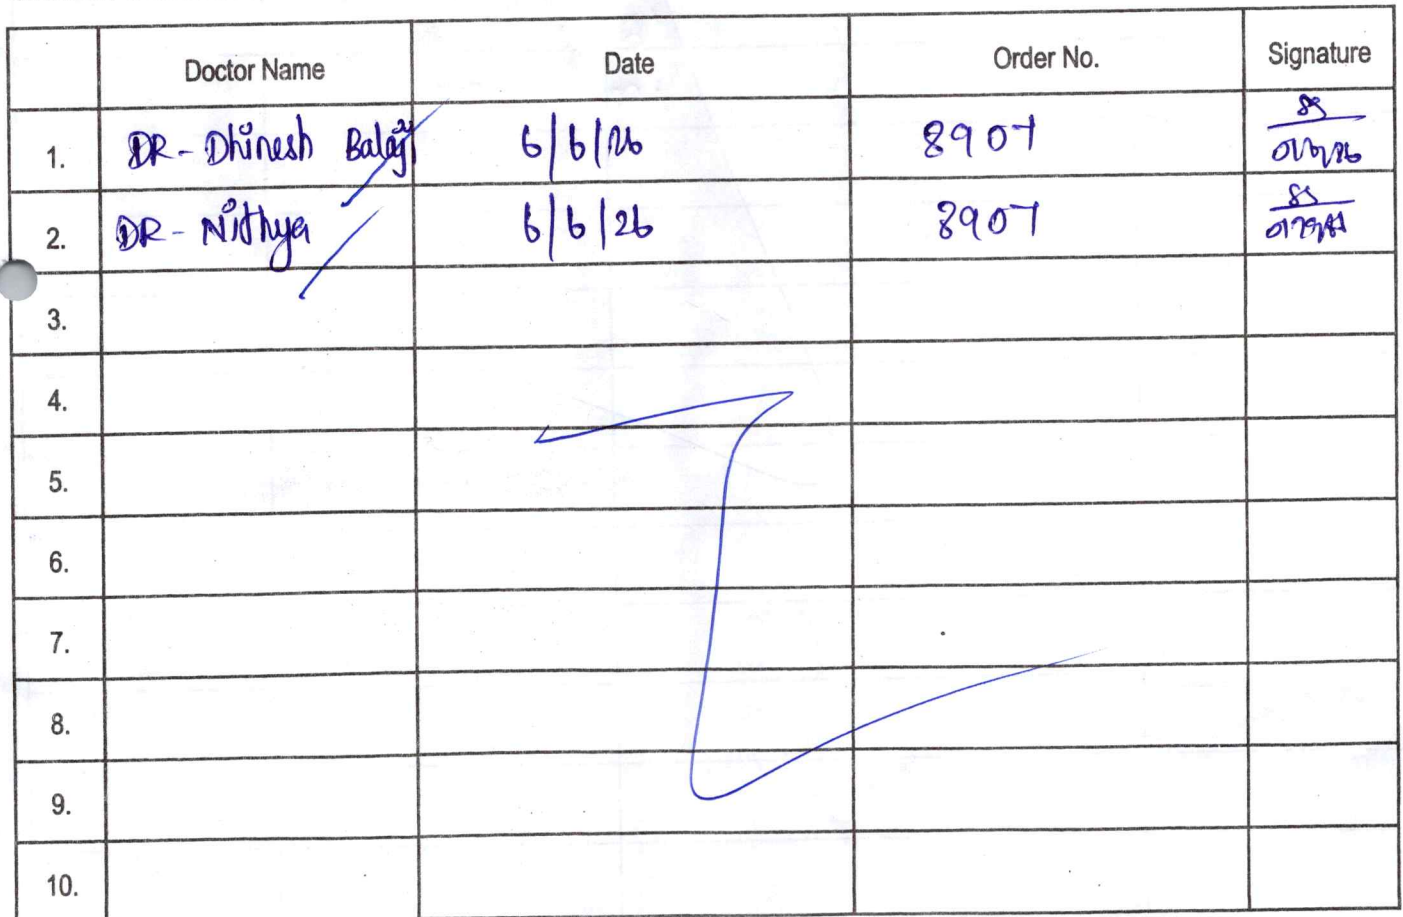 Doctor Name Date Order No. Signature
1. DR - Dhinesh Balaji 6/6/26 8907
2. DR - Nithya 6/6/26 8907
3.
4.
5.
6.
7.
8.
9.
10.